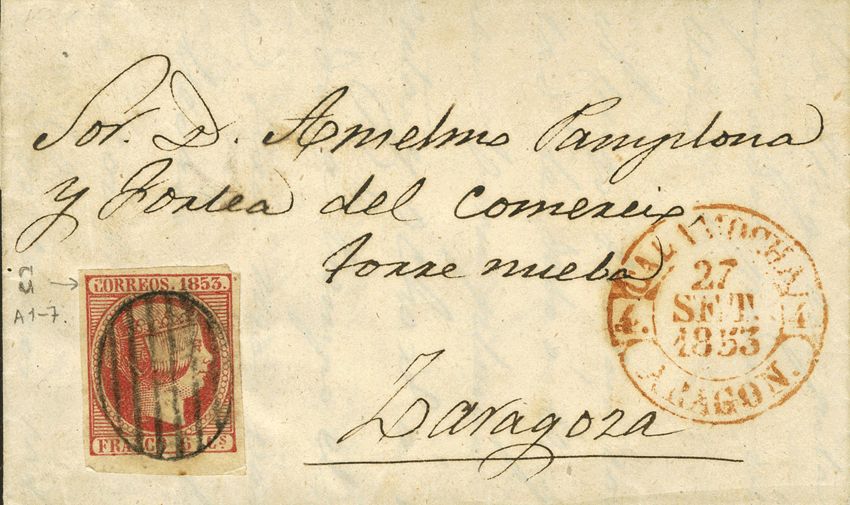 Sor. D. Anselmo Pamplona
y Fortea del comercio
torre nueba
Zaragoza
CORREOS. 1853.
FRANCO 6 Cs
A 1-7.
CALAMOCHA
4. 4.
27
SET.
1853
ARAGON.